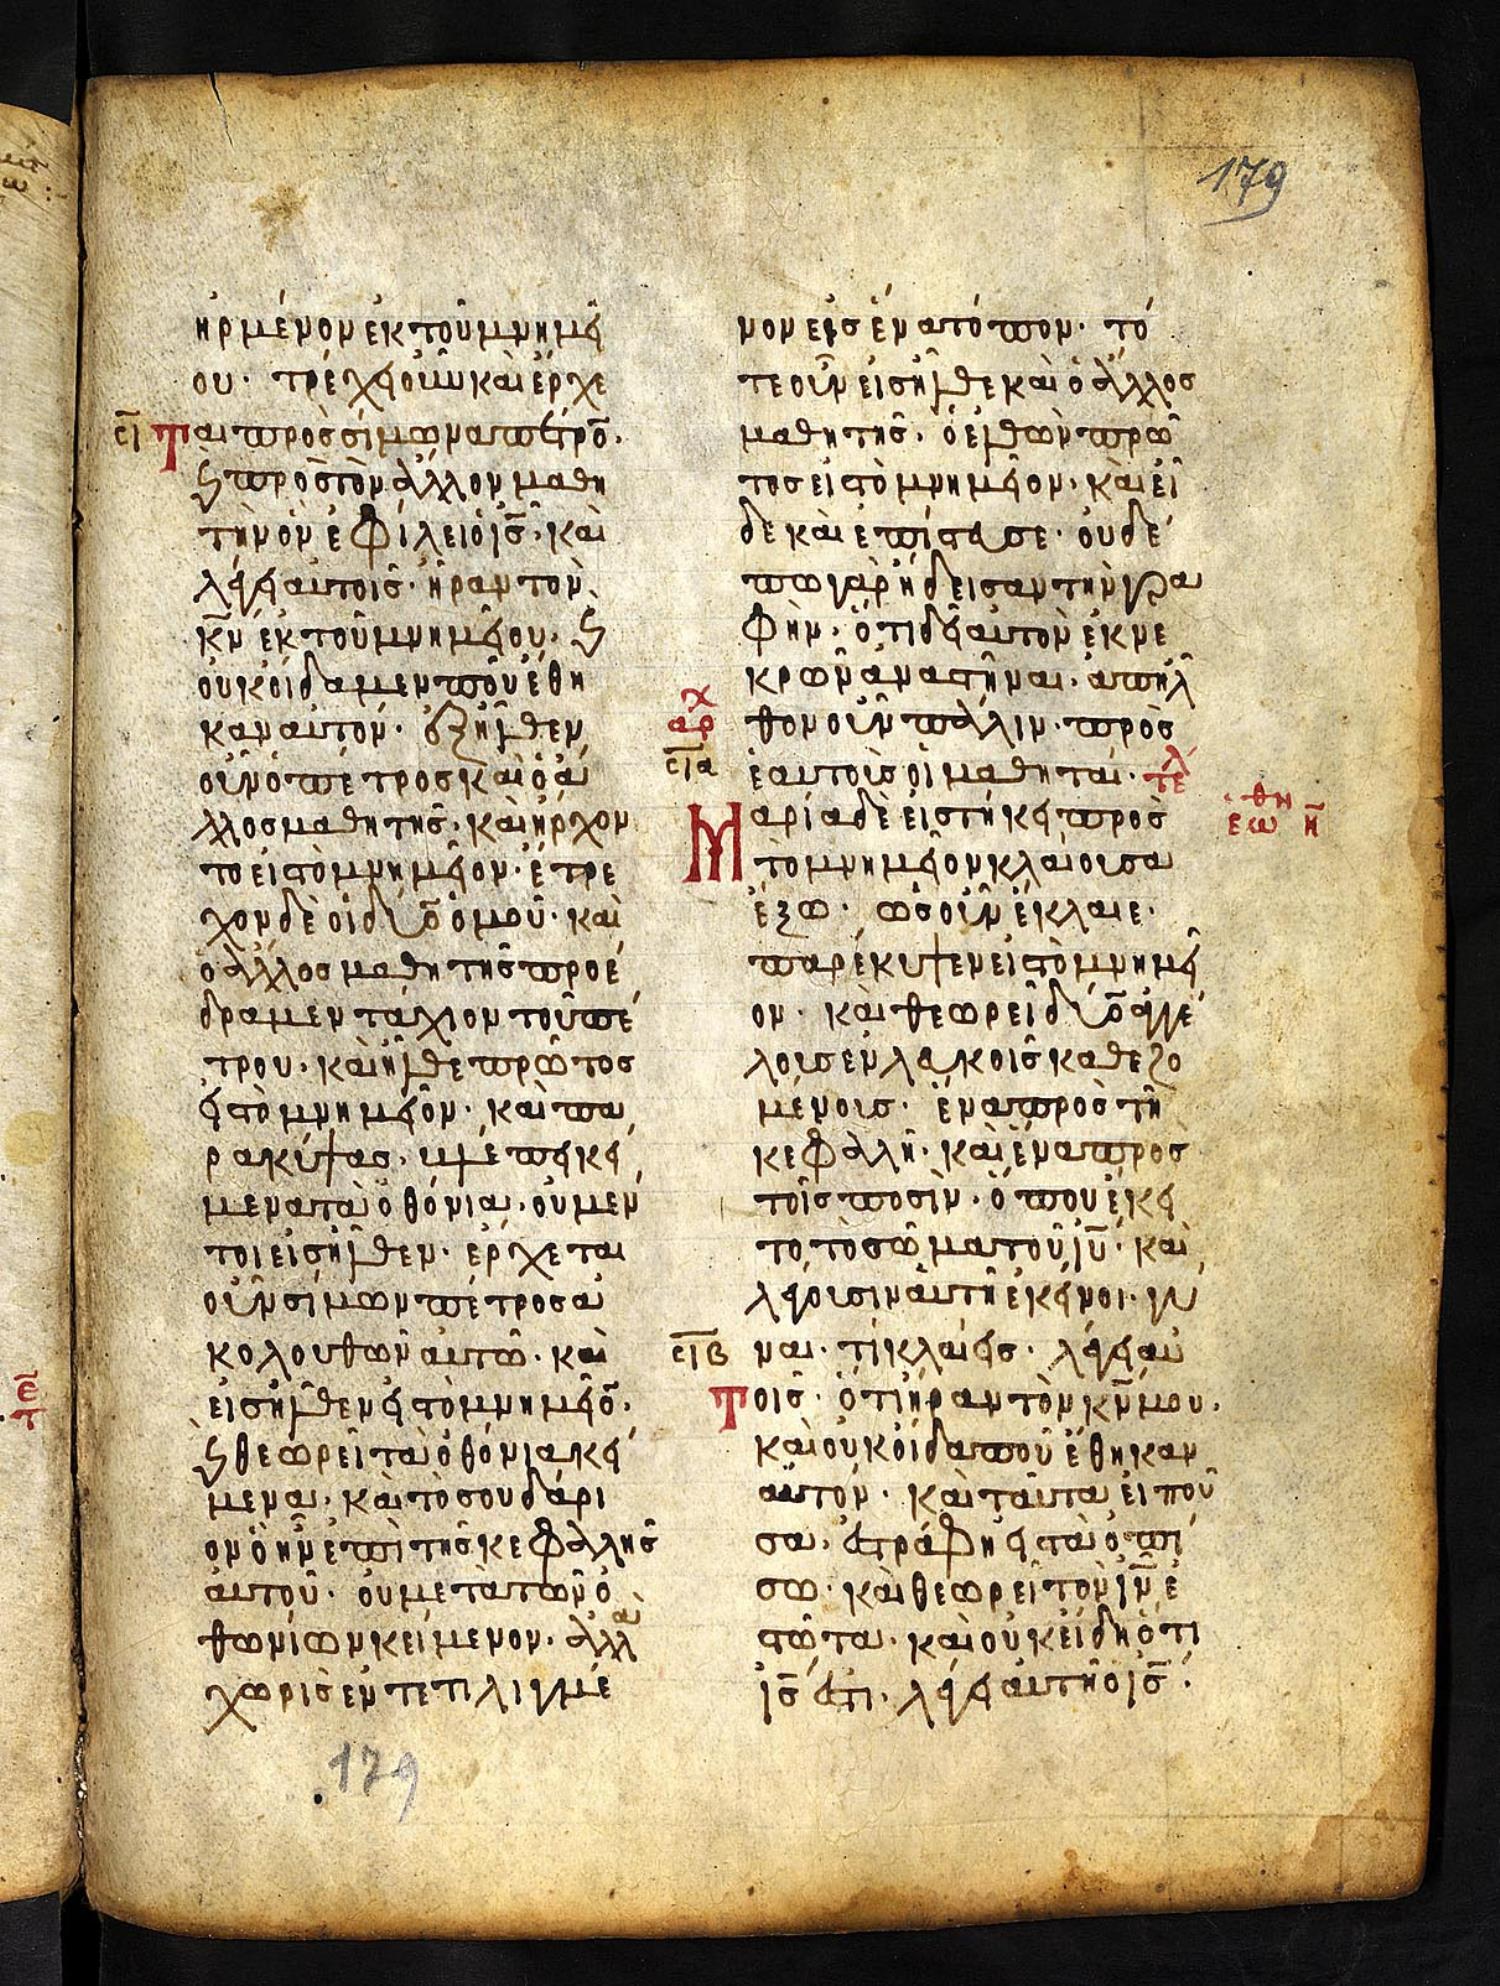 179
ἠρμένον ἐκ τοῦ μνημεί
ου· τρέχει οὖν καὶ ἔρχε
σι ται πρὸς σίμωνα πέτρο̅·
ϗ πρὸς τὸν ἄλλον μαθη
τὴν ὃν ἐφίλει ὁ ι̅ς̅· καὶ
λέγει αὐτοῖς· ἦραν τὸν
κ̅ν̅ ἐκ τοῦ μνημείου· ϗ
οὐκ οἴδαμεν ποῦ ἔθη
καν αὐτόν· ἐξῆλθεν
οὖν ὁ πέτρος καὶ ὁ ἄ
λλος μαθητής· καὶ ἤρχον
το εἰς τὸ μνημεῖον· ἔτρε
χον δὲ οἱ δύο ὁμοῦ· καὶ
ὁ ἄλλος μαθητὴς προέ
δραμεν τάχιον τοῦ πέ
τρου· καὶ ἦλθε πρῶτος
εἰς τὸ μνημεῖον· καὶ πα
ρακύψας· βλέπει κεί
μενα τὰ ὀθόνια· οὐ μέν
τοι εἰσῆλθεν· ἔρχεται
οὖν σίμων πέτρος ἀ
κολουθῶν αὐτῶ· καὶ
εἰσῆλθεν εἰς τὸ μνημεῖο̅·
ϗ θεωρεῖ τὰ ὀθόνια κεί
μενα· καὶ τὸ σουδάρι
ον ὃ ἦν ἐπὶ τῆς κεφαλῆς
αὐτοῦ· οὐ μετὰ τῶν ὀ
θωνίων κείμενον· ἀλλὰ
χωρὶς ἐντετιλιγμέ
179
νον εἰς ἕνα τόπον· τό
τε οὖν εἰσῆλθε καὶ ὁ ἄλλος
μαθητής· ὁ ἐλθὼν πρῶ
τος εἰς τὸ μνημεῖον· καὶ εἶ
δε καὶ ἐπίστευσε· οὐδέ
πω γὰρ ἤδεισαν τὴν γρα
φήν· ὅτι δεῖ αὐτὸν ἐκ νε
κρῶν ἀναστῆναι· ἀπῆλ
αρχ θον οὖν πάλιν· πρὸς
σια ἑαυτοὺς οἱ μαθηταί· τελ
Μαρία δὲ εἱστήκει πρὸς
εωθη η̅
τὸ μνημεῖον κλαίουσα
ἔξω· ὡς οὖν ἔκλαιε·
παρέκυψεν εἰς τὸ μνημεῖ
ον· καὶ θεωρεῖ δύο ἀγγέ
λους ἐν λευκοῖς καθεζο
μένους· ἕνα πρὸς τῆ
κεφαλῆ· καὶ ἕνα πρὸς
τοῖς ποσὶν· ὅπου ἔκει
το τὸ σῶμα τοῦ ι̅υ̅· καὶ
λέγουσιν αὐτῆ ἐκεῖνοι· γύ
σιβ ναι· τί κλαίεις· λέγει αὐ
τοῖς· ὅτι ἦραν τὸν κ̅ν̅ μου·
καὶ οὐκ οἶδα ποῦ ἔθηκαν
αὐτόν· καὶ ταῦτα εἰποῦ
σα· ἐστράφη εἰς τὰ ὀπί
σω· καὶ θεωρεῖ τὸν ι̅ν̅ ἑ
στῶτα· καὶ οὐκ εἴδη ὅτι
ι̅ς̅ ἐστι· λέγει αὐτῆ ὁ ι̅ς̅·